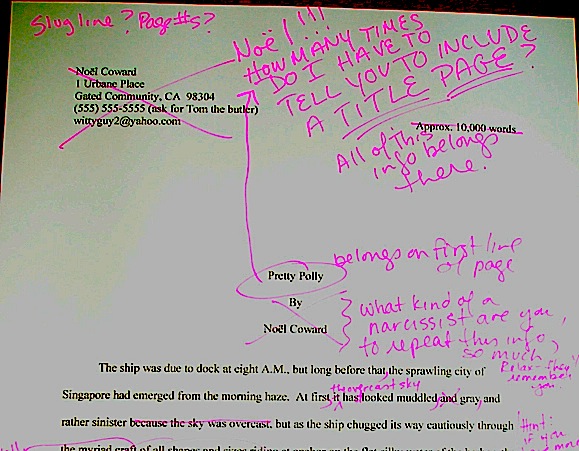 Slug line? Page #s?
Noël!!!
HOW MANY TIMES
DO I HAVE TO
TELL YOU TO INCLUDE
A TITLE PAGE?
Noël Coward
1 Urbane Place
Gated Community, CA 98304
(555) 555-5555 (ask for Tom the butler)
wittyguy2@yahoo.com
Approx. 10,000 words
All of this
info belongs
there.
belongs on first line
of page
Pretty Polly
By
Noël Coward
what kind of a
narcissist are you,
to repeat this info
so much
Relax - they'll
remember
you.
The ship was due to dock at eight A.M., but long before that, the sprawling city of
the overcast sky
Singapore had emerged from the morning haze. At first it has looked muddled and gray, and
rather sinister because the sky was overcast, but as the ship chugged its way cautiously through
Hint:
if you
the myriad craft of all shapes and sizes riding at anchor on the flat silky